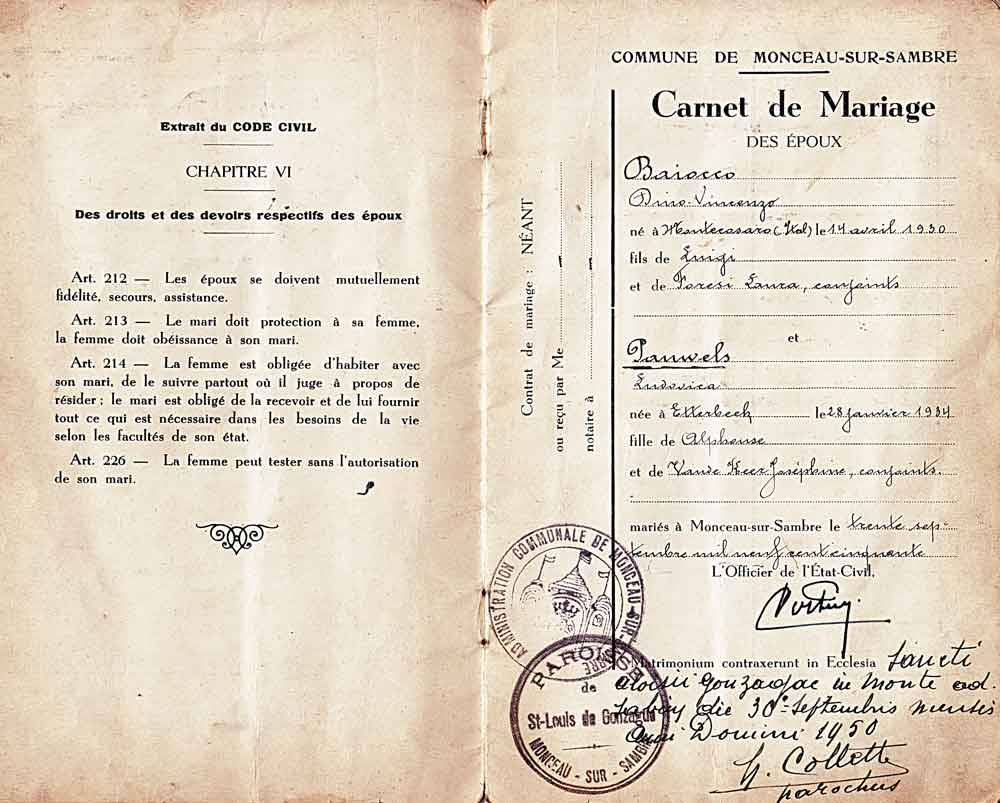 Extrait du CODE CIVIL
CHAPITRE VI
Des droits et des devoirs respectifs des époux
Art. 212 — Les époux se doivent mutuellement
fidélité, secours, assistance.
Art. 213 — Le mari doit protection à sa femme,
la femme doit obéissance à son mari.
Art. 214 — La femme est obligée d'habiter avec
son mari, de le suivre partout où il juge à propos de
résider ; le mari est obligé de la recevoir et de lui fournir
tout ce qui est nécessaire dans les besoins de la vie
selon les facultés de son état.
Art. 226 — La femme peut tester sans l'autorisation
de son mari.
Contrat de mariage : NÉANT
ou reçu par Me
notaire à
COMMUNE DE MONCEAU-SUR-SAMBRE
Carnet de Mariage
DES ÉPOUX
Baiocco
Dino-Vincenzo
né à Montecosaro (Ital) le 14 avril 1930
fils de Luigi
et de Foresi Laura, conjoints
et
Pauwels
Ludovica
née à Etterbeek le 28 janvier 1934
fille de Alphonse
et de Vande Keer Joséphine, conjoints.
mariés à Monceau-sur-Sambre le trente sep-
tembre mil neuf cent cinquante
L'Officier de l'État-Civil,
Matrimonium contraxerunt in Ecclesia Sancti
Aloisii Gonzagae in Monte ad
die 30a Septembris mensis
Domini 1950
Collette
parochus
ADMINISTRATION COMMUNALE DE MONCEAU-SUR-SAMBRE
PAROISSE
de
St-Louis de Gonzague
MONCEAU - SUR - SAMBRE